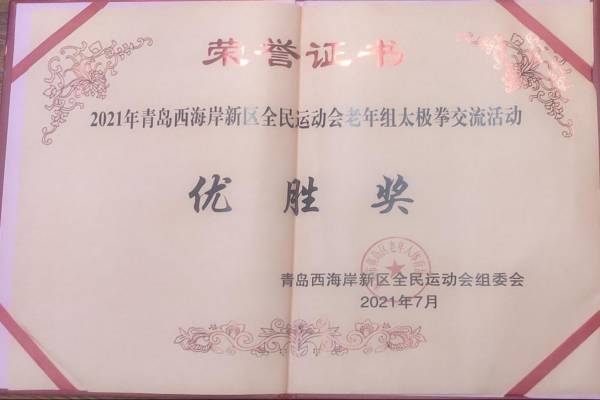 荣誉证书
2021年青岛西海岸新区全民运动会老年组太极拳交流活动
优胜奖
青岛西海岸新区全民运动会组委会
2021年7月